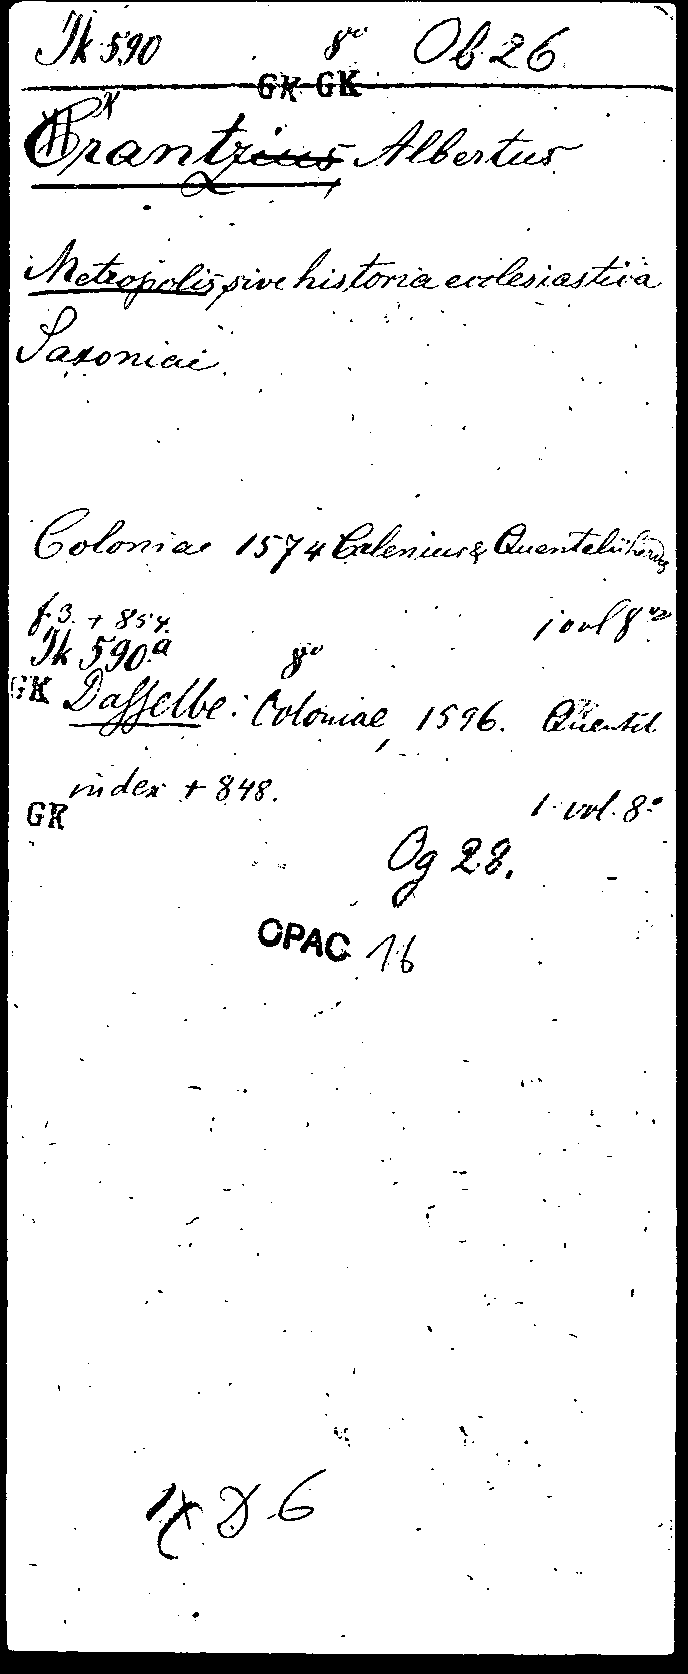 Jk 590 8vo Ob 26
GK GK
K
Crantzius Albertus
Metropolis, sive historia ecclesiastica
Saxoniae.
Coloniae 1574 Calenius & Quentelii
f. 3. + 854. 1 vol 8vo
Jk 590a 8vo
GK Dasselbe: Coloniae, 1596. Quentel
index + 848. 1 vol. 8°
GK
Og 28.
OPAC 16